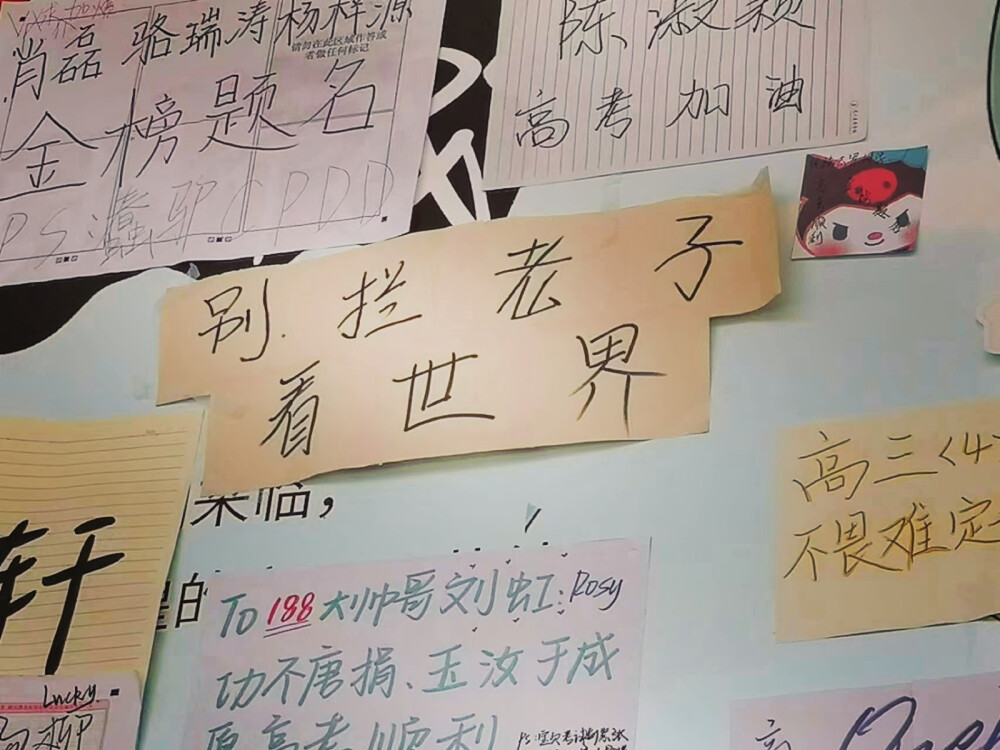 肖磊 骆瑞涛 杨梓源
请勿在此区域作答或
者做任何标记
金榜题名
陈淑颖
高考加油
别拦老子
看世界
高三(4)
不畏难定
轩
来临,
的
To 188大帅哥刘虹: Rosy
功不唐捐、玉汝于成
愿高考顺利
Lucky.